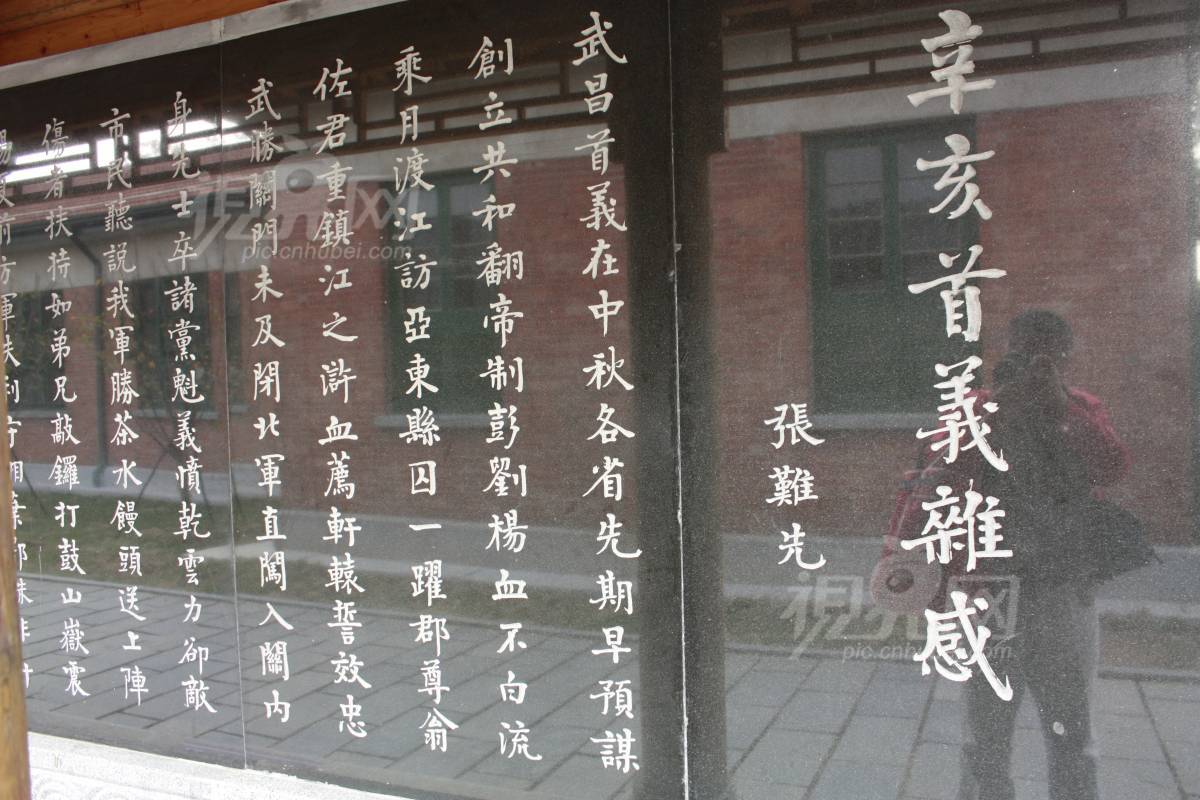 辛亥首義雜感
張難先
武昌首義在中秋各省先期早預謀
創立共和翻帝制彭劉楊血不白流
乘月渡江訪亞東縣囚一躍郡尊翁
佐君重鎮江之滸血薦軒轅誓效忠
武勝關門未及閉北軍直闖入關內
身先士卒諸黨魁義憤乾雲力卻敵
市民聽說我軍勝茶水饅頭送上陣
傷者扶持如弟兄敲鑼打鼓山嶽震
前方軍
視界网
pic.cnhubei.com
視界网
pic.cnhubei.com